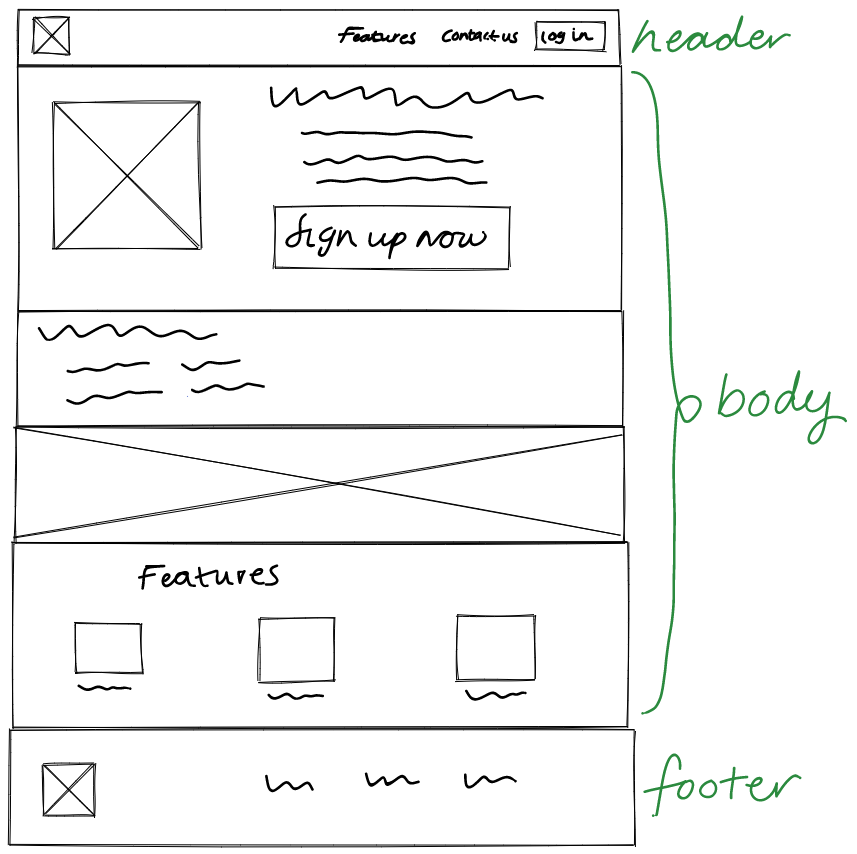 Features Contact us Log in
header
Sign up now
body
Features
footer